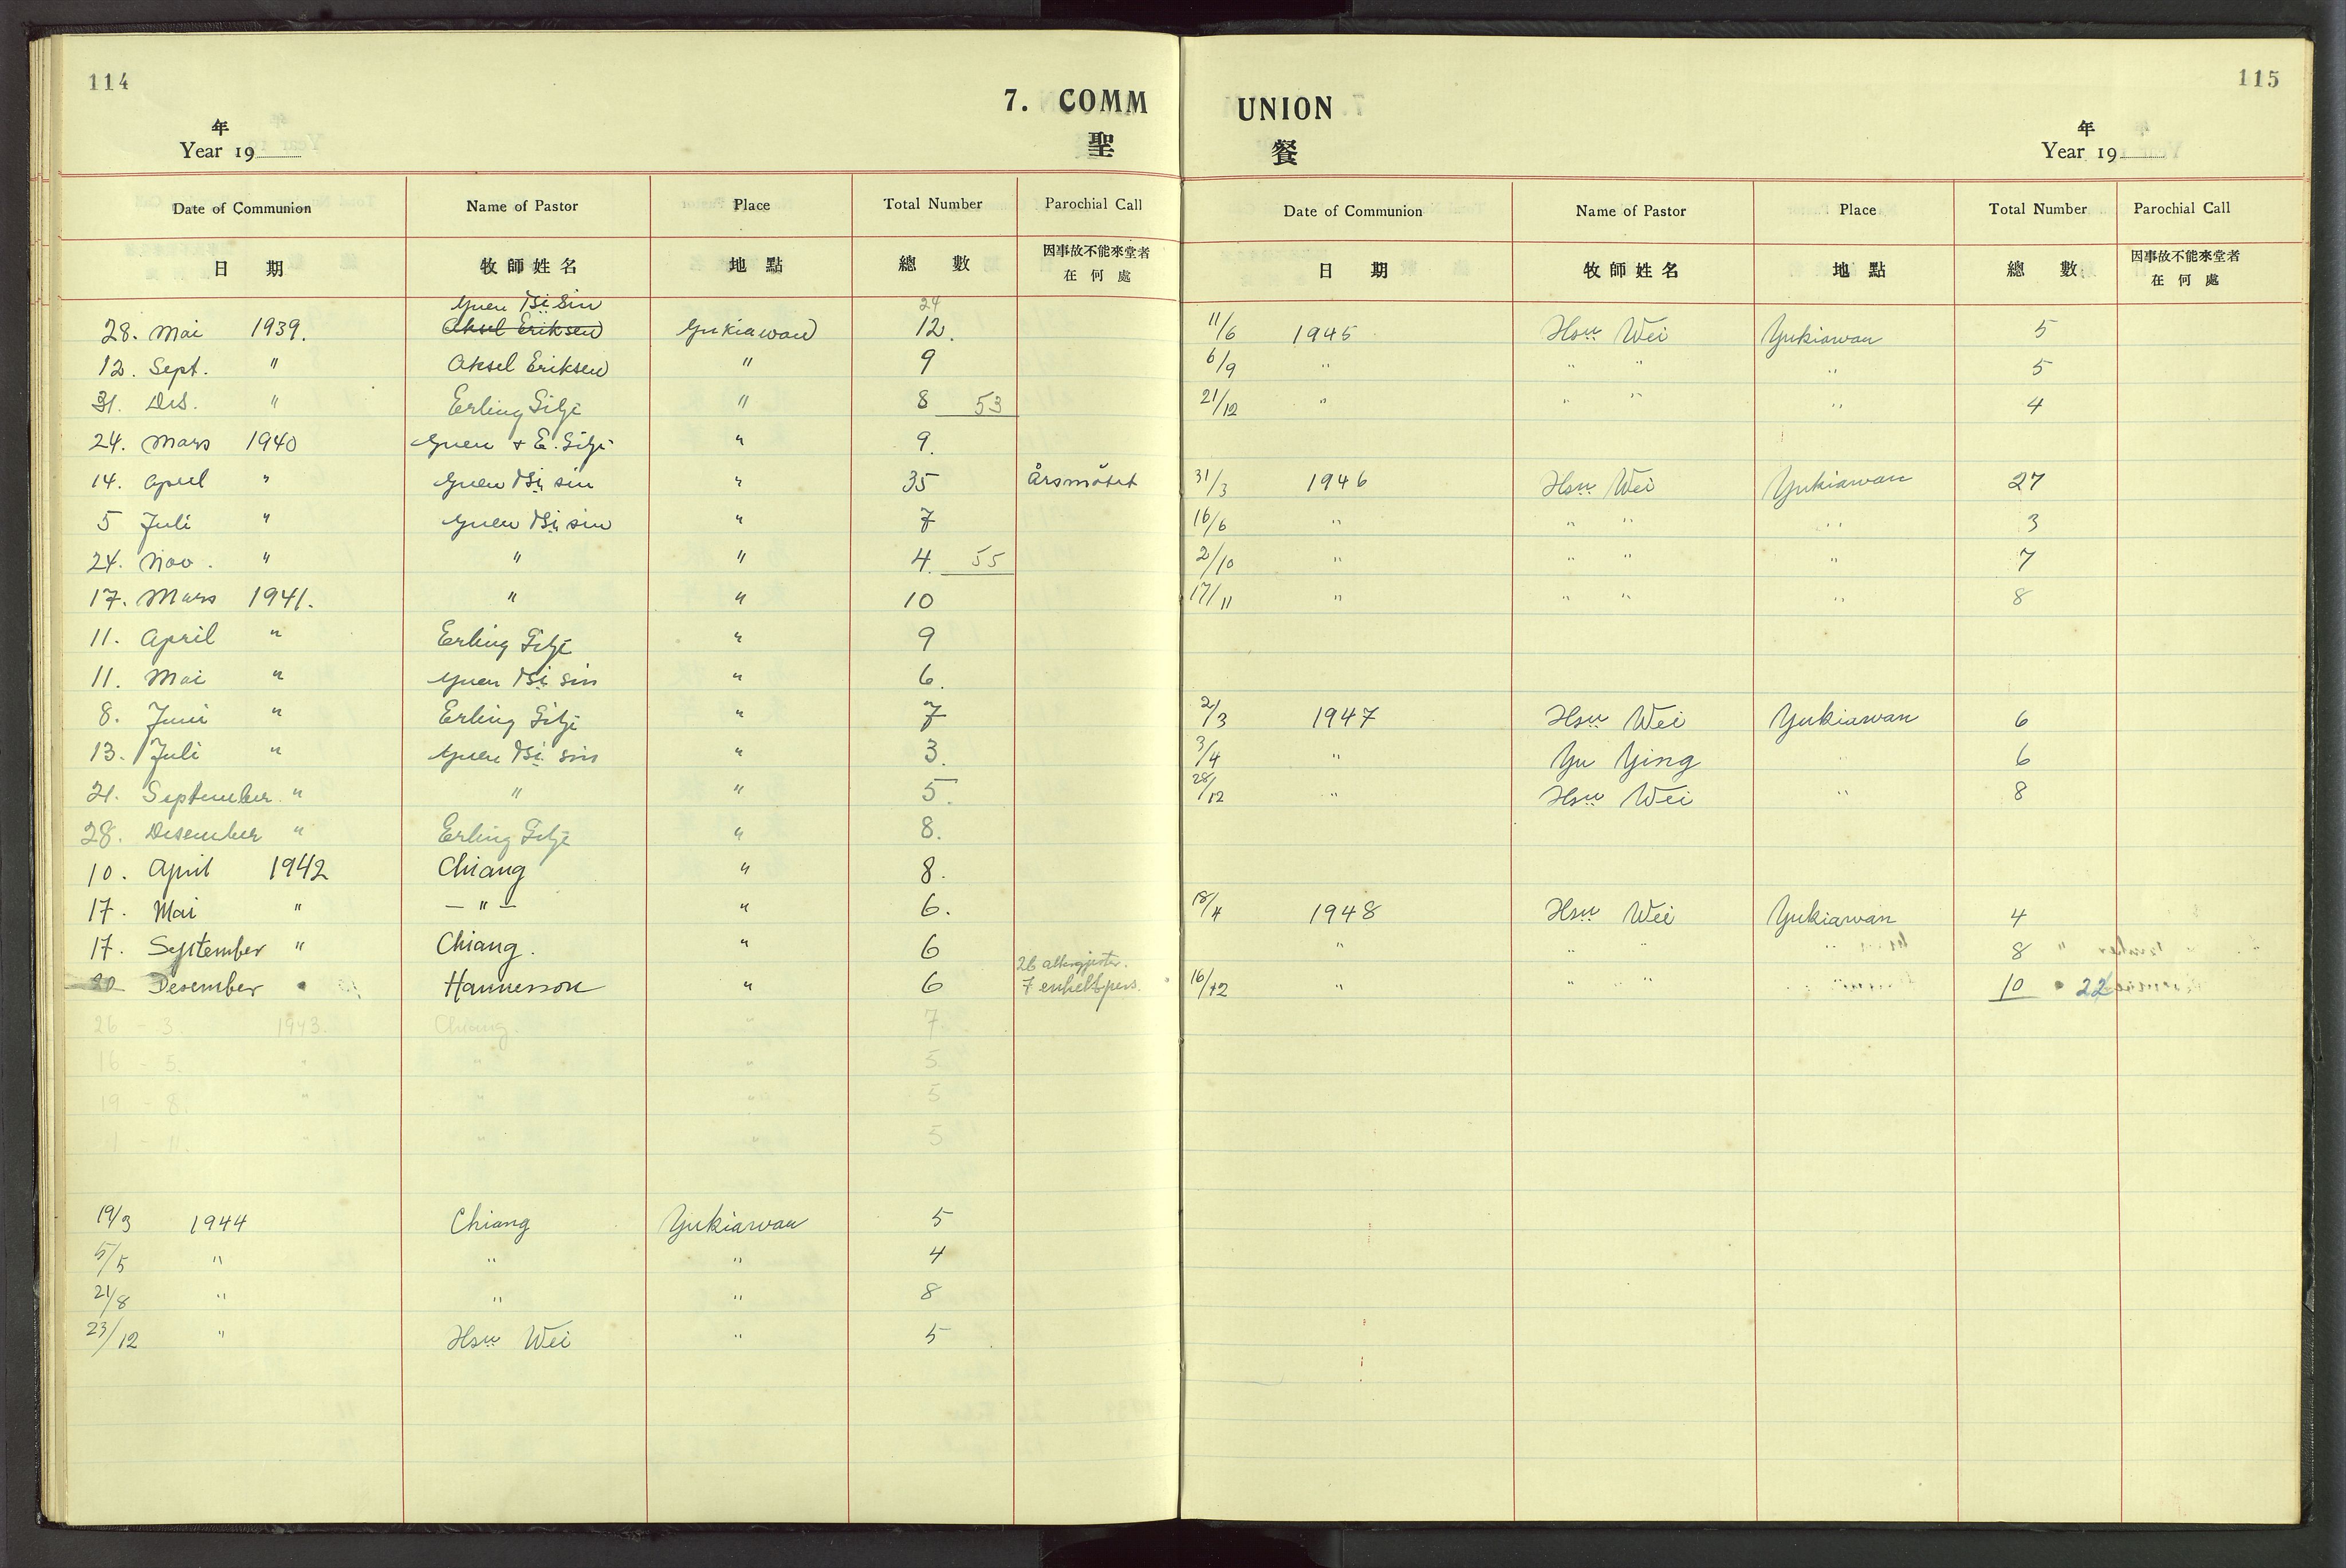 114
7. COMM
聖
年
Year 19
Date of Communion Name of Pastor Place Total Number Parochial Call
日 期 牧師姓名 地點 總數 因事故不能來堂者
在何處
Yuen Tsi Sin 24
28. Mai 1939. Aksel Eriksen Yukiawan 12.
12. Sept. " Aksel Eriksen " 9
31. Des. " Erling Gilje " 8 53
24. Mars 1940 Yuen + E. Gilje " 9.
14. April " Yuen Tsi sin " 35 årsmötet
5 Juli " Yuen Tsi sin " 7
24. Nov. " " " 4. 55
17. Mars 1941. " " 10
11. April " Erling Gilje " 9
11. Mai " Yuen Tsi sin " 6.
8. Juni " Erling Gilje " 7
13. Juli " Yuen Tsi sin " 3.
21. September " " " 5.
28. Desember " Erling Gilje " 8.
10. April 1942 Chiang " 8.
17. Mai " — " — " 6.
17. September " Chiang. " 6
26 altergjester.
20 Desember " Hannesson " 6 7 enkeltpers.
26 - 3. 1943. Chiang. " 7
16 - 5. " " " 5
19 - 8. " " " 5
1 - 11. " " " 5
19/3 1944 Chiang Yukiawan 5
5/5 " " " 4
21/8 " " " 8
23/12 " Hsu Wei " 5
115
UNION
餐
年
Year 19
Date of Communion Name of Pastor Place Total Number Parochial Call
日 期 牧師姓名 地點 總數 因事故不能來堂者
在何處
11/6 1945 Hsu Wei Yukiawan 5
6/9 " " " " 5
21/12 " " " " 4
31/3 1946 Hsu Wei Yukiawan 27
16/6 " " " " 3
2/10 " " " " 7
17/11 " " " " 8
2/3 1947 Hsu Wei Yukiawan 6
3/4 " Yu Ying " 6
28/12 " Hsu Wei " 8
18/4 1948 Hsu Wei Yukiawan 4
" " " " 8
16/12 " " " " 10 22